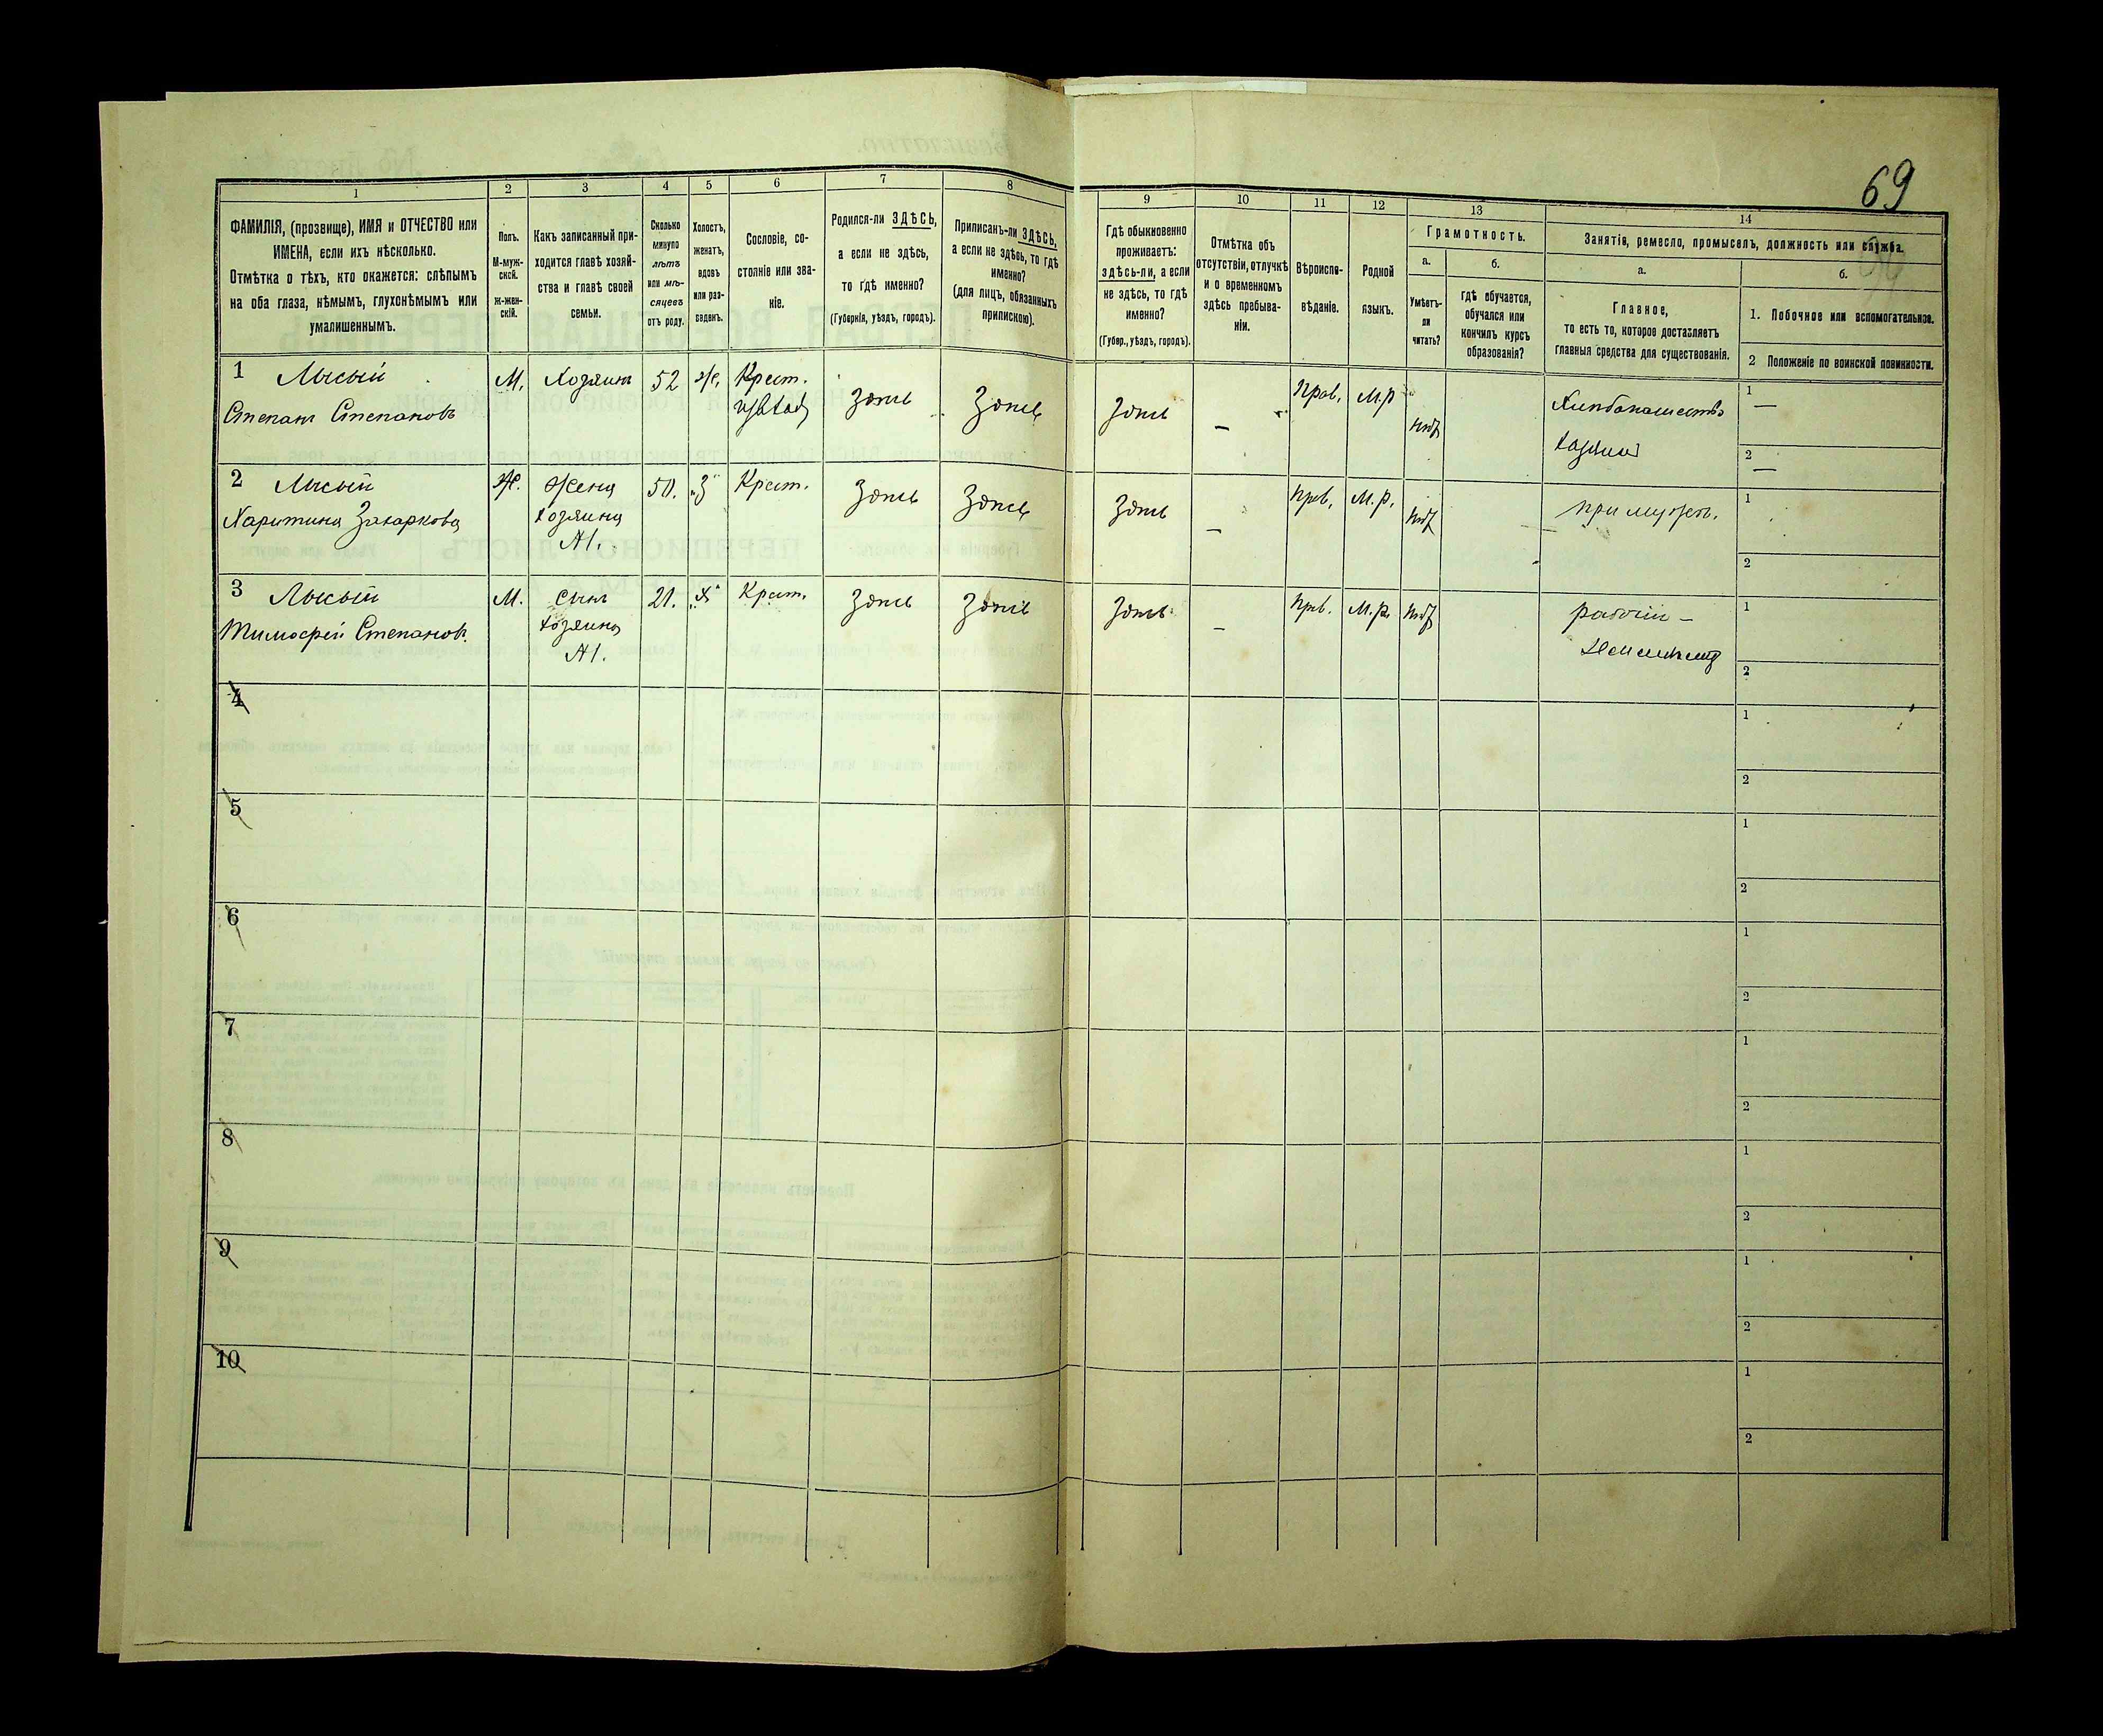 69
1
2
3
4
5
6
7
8
9
10
11
12
13
14
ФАМИЛІЯ, (прозвище), ИМЯ и ОТЧЕСТВО или
ИМЕНА, если ихъ нѣсколько.
Отмѣтка о тѣхъ, кто окажется: слѣпымъ
на оба глаза, нѣмымъ, глухонѣмымъ или
умалишеннымъ.
Полъ.
М-муж-
ской.
Ж-жен-
скій.
Какъ записанный при-
ходится главѣ хозяй-
ства и главѣ своей
семьи.
Сколько
минуло
лѣтъ
или мѣ-
сяцевъ
отъ роду.
Холостъ,
женатъ,
вдовъ
или раз-
веденъ.
Сословіе, со-
стояніе или зва-
ніе.
Родился-ли ЗДѢСЬ,
а если не здѣсь,
то гдѣ именно?
(Губернія, уѣздъ, городъ).
Приписанъ-ли ЗДѢСЬ,
а если не здѣсь, то гдѣ
именно?
(для лицъ, обязанныхъ
припискою).
Гдѣ обыкновенно
проживаетъ:
здѣсь-ли, а если
не здѣсь, то гдѣ
именно?
(Губер., уѣздъ, городъ).
Отмѣтка объ
отсутствіи, отлучкѣ
и о временномъ
здѣсь пребыва-
ніи.
Вѣроиспо-
вѣданіе.
Родной
языкъ.
Грамотность.
а.
Умѣетъ-
ли
читать?
б.
гдѣ обучается,
обучался или
кончилъ курсъ
образованія?
Занятіе, ремесло, промыселъ, должность или служба.
а.
Главное,
то есть то, которое доставляетъ
главныя средства для существованія.
б.
1. Побочное или вспомогательное.
2 Положеніе по воинской повинности.
1 Лысый
Степанъ Степановъ
М.
Хозяинъ
52
Ж.
Крест.
Здѣсь
Здѣсь
Здѣсь
—
Прав.
М.р
нѣт
Хлѣбопашество
Хозяинъ
1
—
2
—
2 Лысый
Харитина Захаркова
Ж.
Жена
хозяина
№1.
50.
З
Крест.
Здѣсь
Здѣсь
Здѣсь
—
Прав.
М.р.
нѣт
при мужѣ.
1
2
3 Лысый
Тимофей Степановъ
М.
Сынъ
хозяина
№1.
21.
Х
Крест.
Здѣсь
Здѣсь
Здѣсь
—
Прав.
М.р.
нѣт
рабочій —
1
2
4
1
2
5
1
2
6
1
2
7
1
2
8
1
2
9
1
2
10
1
2